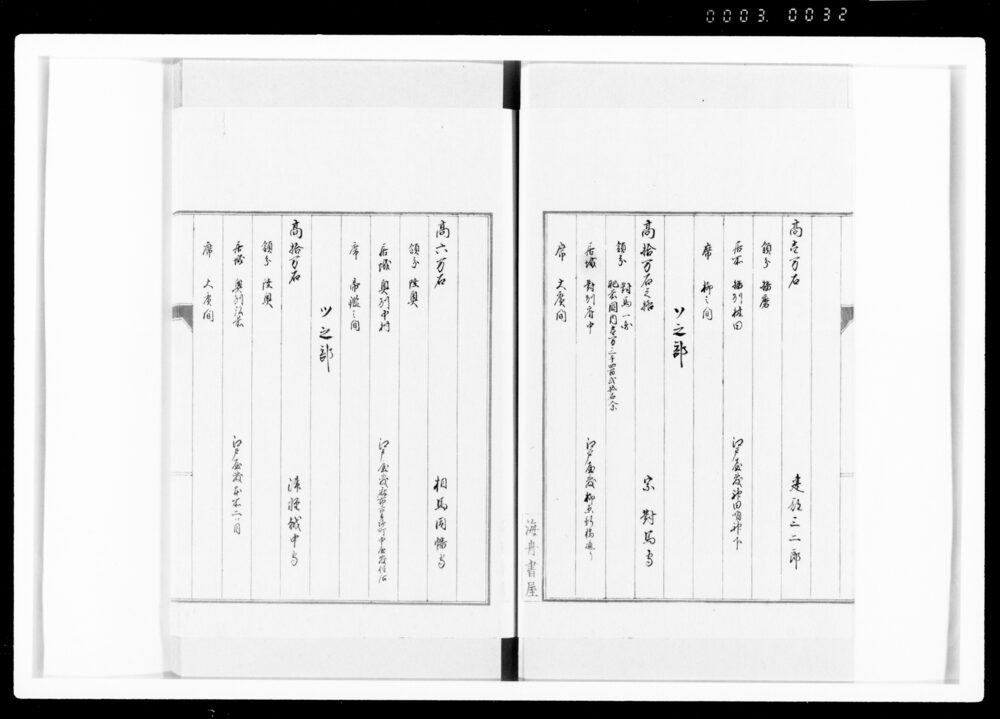 0003. 0032
高壱万石
建部三二郎
領分 播磨
居所 播刕林田
江戸屋敷神田明神下
席 柳之間
ツ之部
高拾万石之格
宗對馬守
領分 對馬一圓
肥前國内壱万三千四百弐拾石余
居城 對刕府中
江戸屋敷柳原新橋通り
席 大廣間
海舟書屋
高六万石
相馬因幡守
領分 陸奥
居城 奥刕中村
席 帝鑑之間
ツ之部
高拾万石
津軽越中守
領分 陸奥
居城 奥刕弘前
江戸屋敷本所二ツ目
席 大廣間